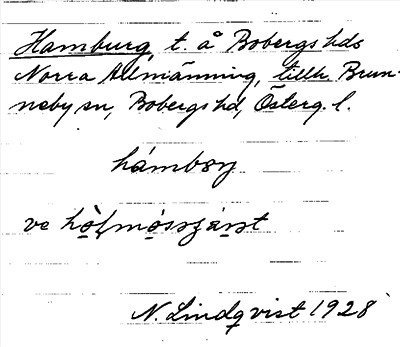 Hamburg, t. å Bobergs hds
Norra Allmänning, tillh. Brun-
neby sn, Bobergs hd, Österg. l.
hámbory
ve
N. Lindqvist 1928